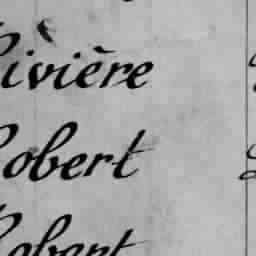 Rivière
Robert
Robert